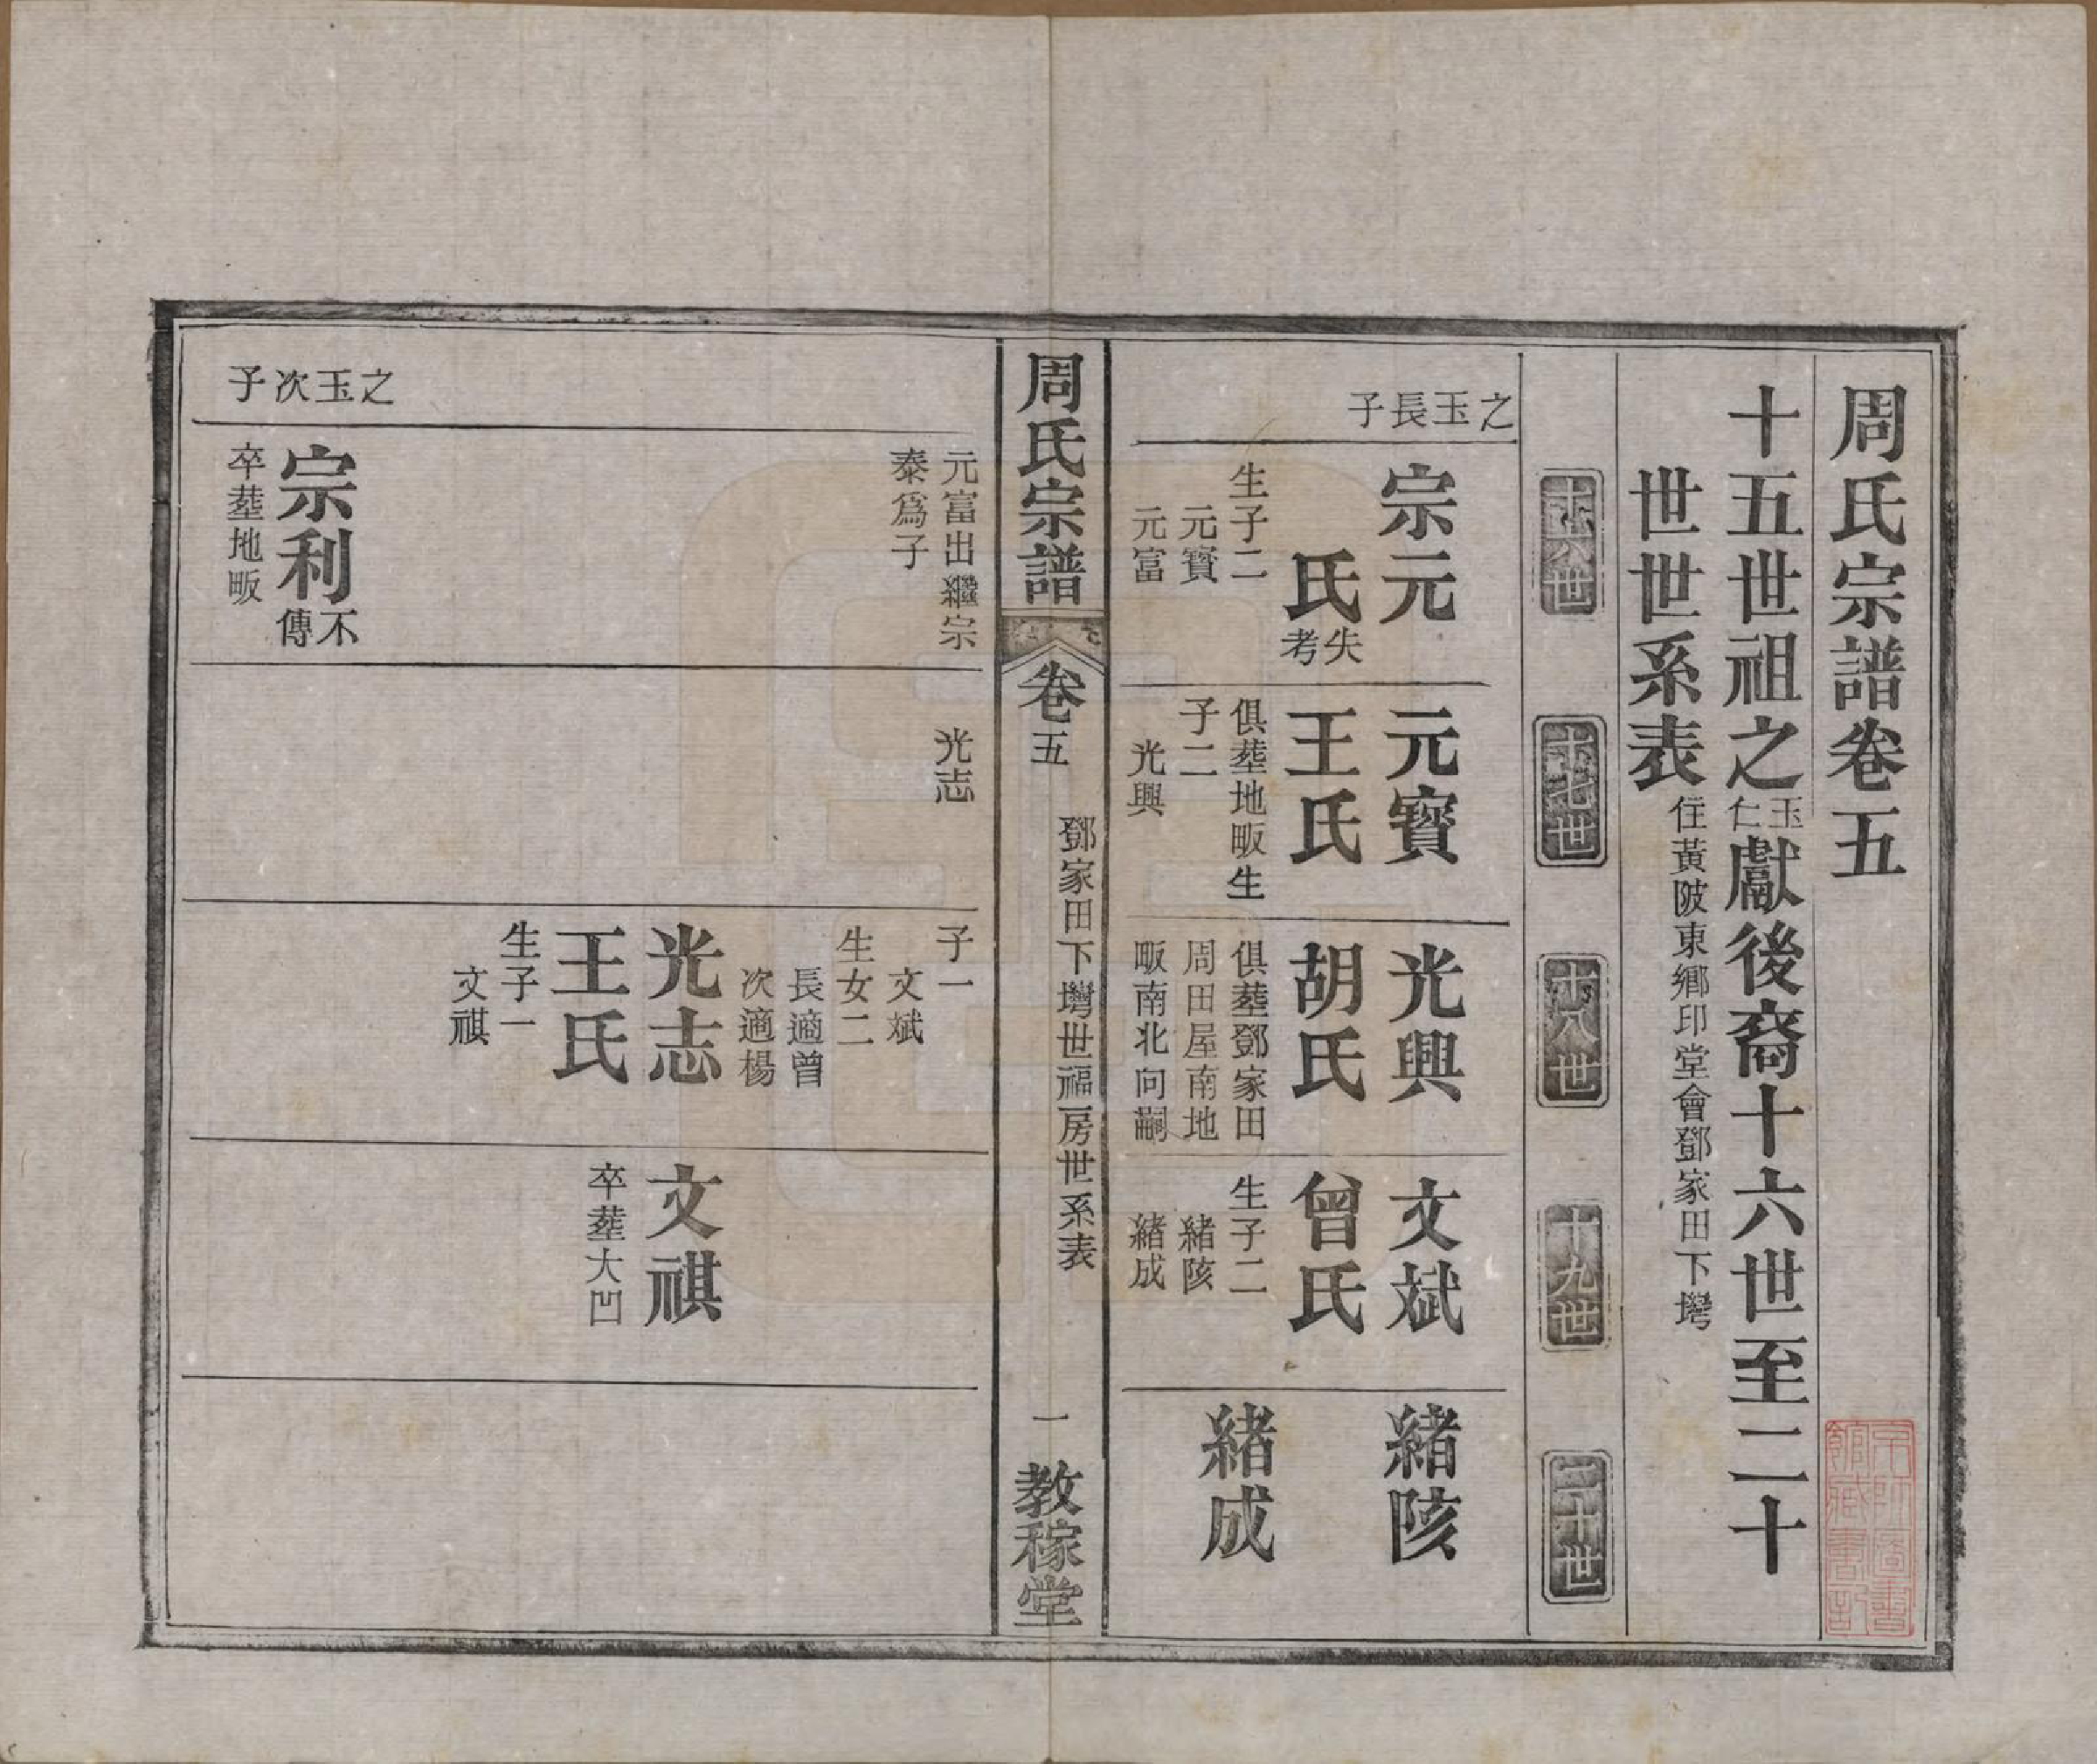 周氏宗譜卷五
十五世祖之玉仁獻後裔十六世至二十
世世系表住黃陂東鄉印堂會鄧家田下塆
十六世
十七世
十八世
十九世
二十世
之玉長子
宗元
氏失考
生子二
元寶
元富
元寶
王氏
俱塟地畈生
子二
光興
光興
胡氏
俱塟鄧家田
周田屋南地
畈南北向嗣
文斌
曾氏
生子二
緒陔
緒成
緒陔
緒成
周氏宗譜
卷五
鄧家田下塆世福房世系表
一
教稼堂
元富出繼宗
泰爲子
光志
子一
文斌
生女二
長適曾
次適楊
光志
王氏
生子一
文祺
文祺
卒塟大凹
之玉次子
宗利不傳
卒塟地畈